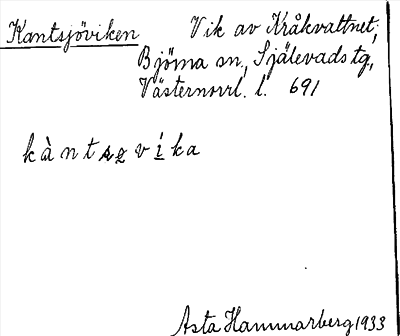 Kantsjöviken Vik av Kråkvattnet;
Björna sn., Själevads tg.,
Västernorrl. l. 691
kàntszvíka
Asta Hammarberg 1933